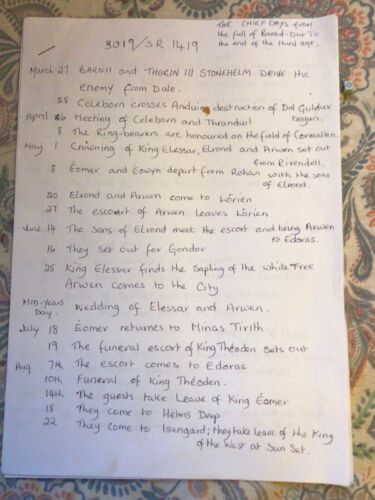 THE CHIEF DAYS from
the fall of Barad-Dur To
the end of the third age.
3019/SR 1419
March 27 BARD II and THORIN III STONEHELM DRIVE the
enemy from Dale.
28 Celeborn crosses Anduin destruction of Dol Guldur
begun.
April 6 Meeting of Celeborn and Thranduil
8 The Ring-bearers are honoured on the field of Cormallen.
May 1 Crowning of King Elessar, Elrond and Arwen set out
from Rivendell.
8 Éomer and Eowyn depart from Rohan with the sons
of Elrond.
20 Elrond and Arwen come to Lórien
27 The escort of Arwen leaves Lórien
June 14 The Sons of Elrond meet the escort and bring Arwen
to Edoras.
16 They set out for Gondor
25 King Elessar finds the Sapling of the white Tree
Arwen comes to the City
Mid-Years
Day. Wedding of Elessar and Arwen.
July 18 Éomer returns to Minas Tirith.
19 The funeral escort of King Théoden sets out
Aug 7th The escort comes to Edoras
10th Funeral of King Théoden.
14th The guests take Leave of King Éomer
18 They come to Helms Deep
22 They come to Isengard; they take leave of the King
of the West at Sun Set.